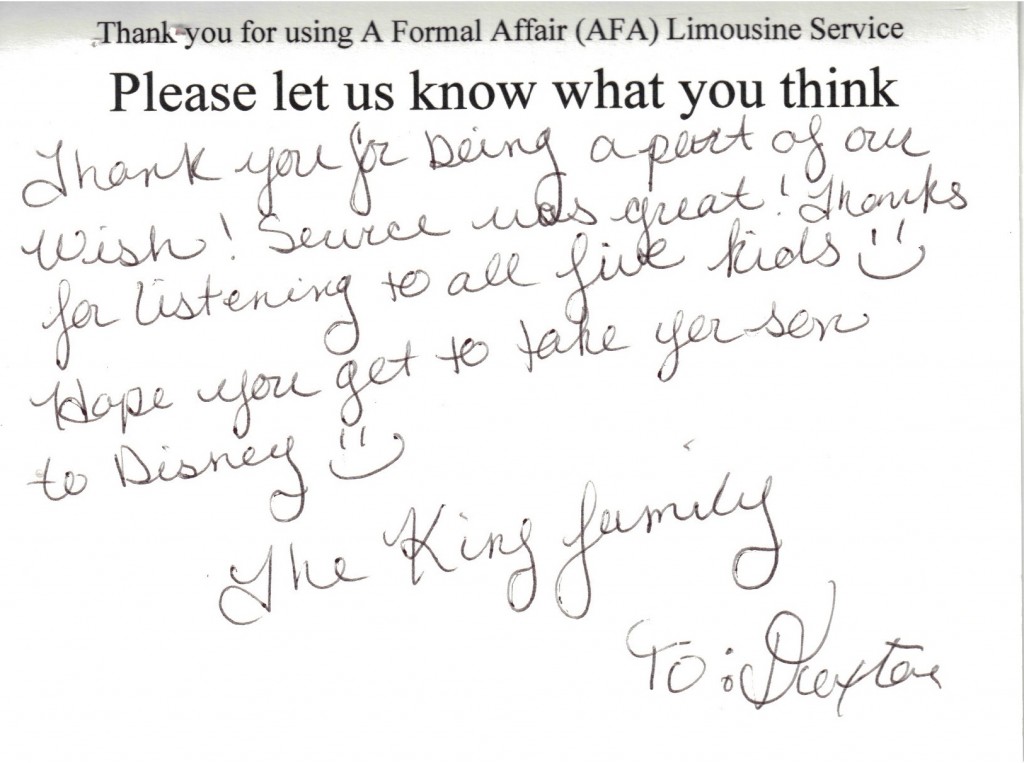 Thank you for using A Formal Affair (AFA) Limousine Service
Please let us know what you think
Thank you for being a part of our
Wish! Service was great! Thanks
for listening to all five kids
Hope you get to take yer son
to Disney
The King family
To: